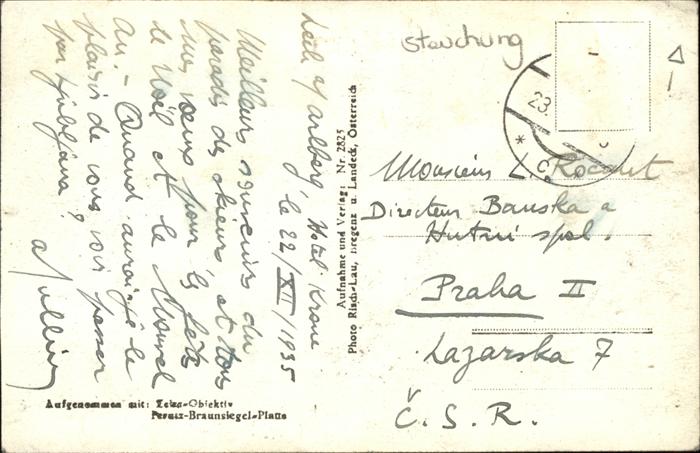 Lech a/Arlberg Hotel Krone
le 22/XII/1935
Meilleurs souvenirs du
paradis des skieurs, et tous
mes vœux pour les fêtes
de Noël et le Nouvel
An. - Quand aurai-je le
plaisir de vous voir passer
par Ljubljana ?
Aufgenommen mit: Zeiss-Objektiv
Perutz-Braunsiegel-Platte
Aufnahme und Verlag: Nr. 2825
Photo Risch-Lau, Bregenz u. Landeck, Österreich
steuchung
23.
Monsieur L. Rocourt
Directeur Banska a
Hutní spol.
Praha II
Lazarska 7
Č. S. R.